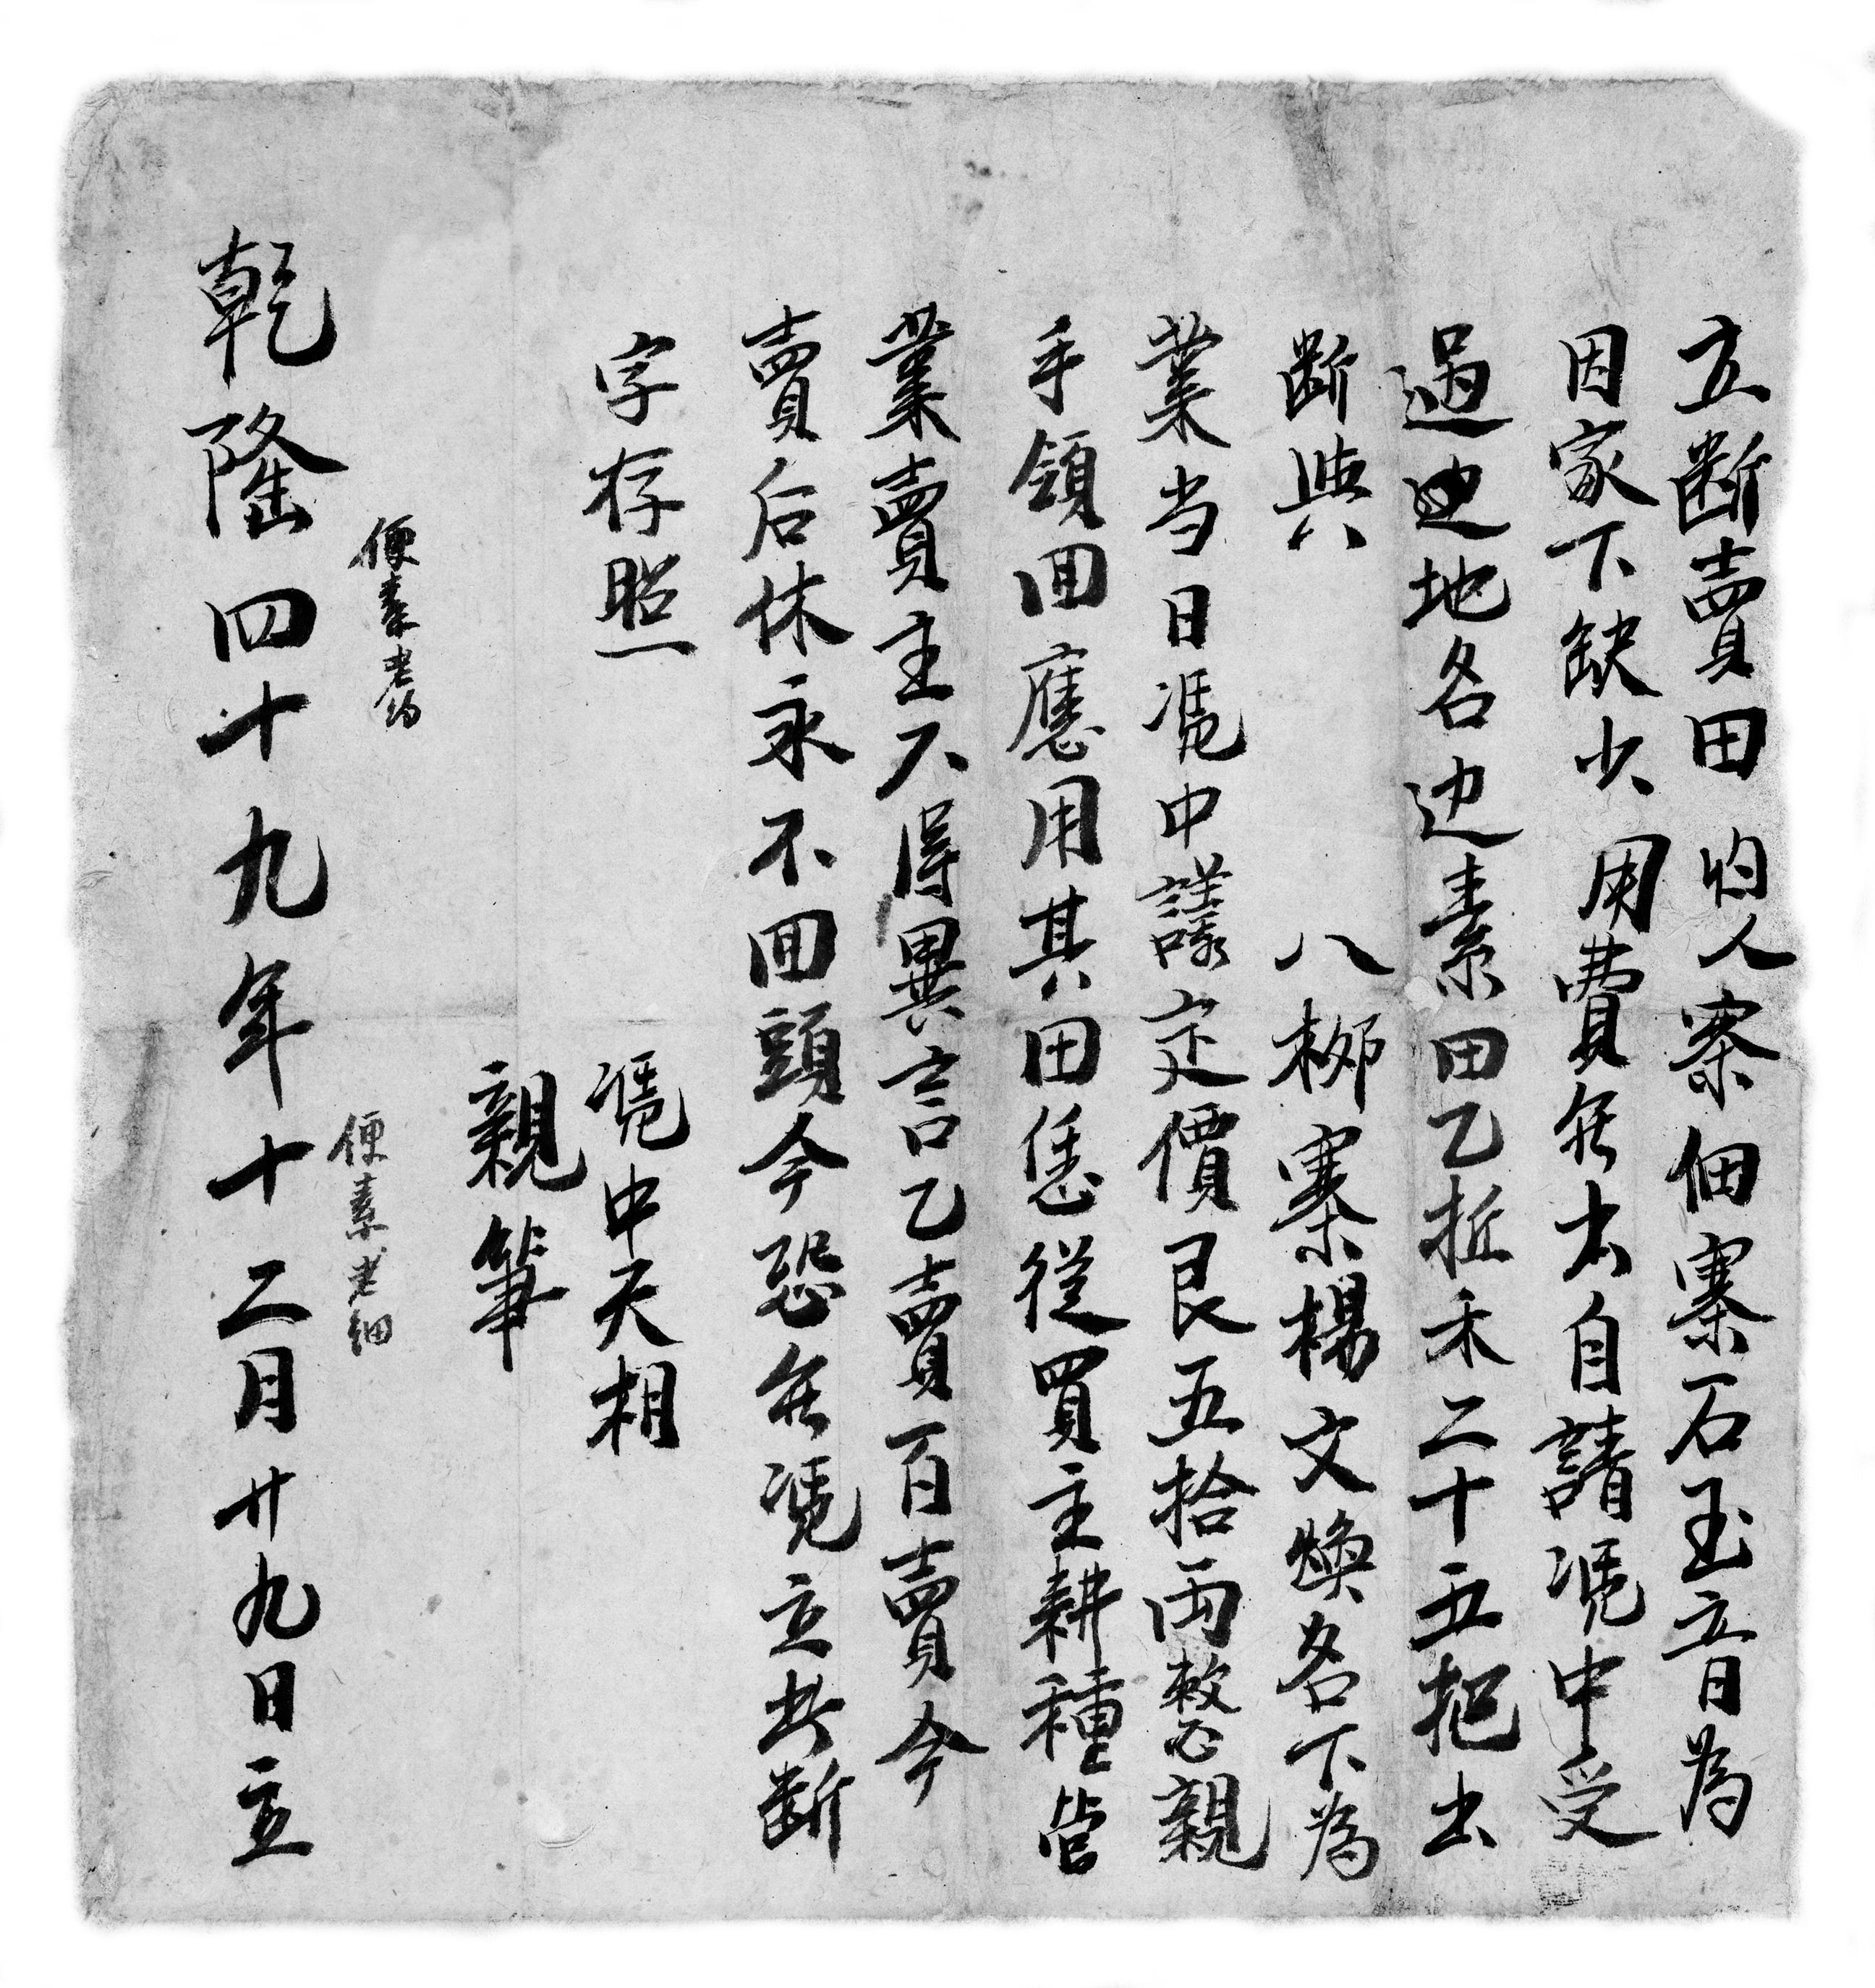 立断賣田約人寨佃寨石玉音為
因家下缺少用費無出自請凴中受
過迎地名边素田乙坵禾二十五把出
断與
八柳寨楊文煥名下為
業当日凴中議定價艮五拾両整親
手領回應用其田恁從買主耕種管
業賣主不得異言乙賣百賣今
賣后休永不回頭今恐無凴立此断
字存照
凴中天相
親筆
便素老約
便素老細
乾隆四十九年十二月廿九日立